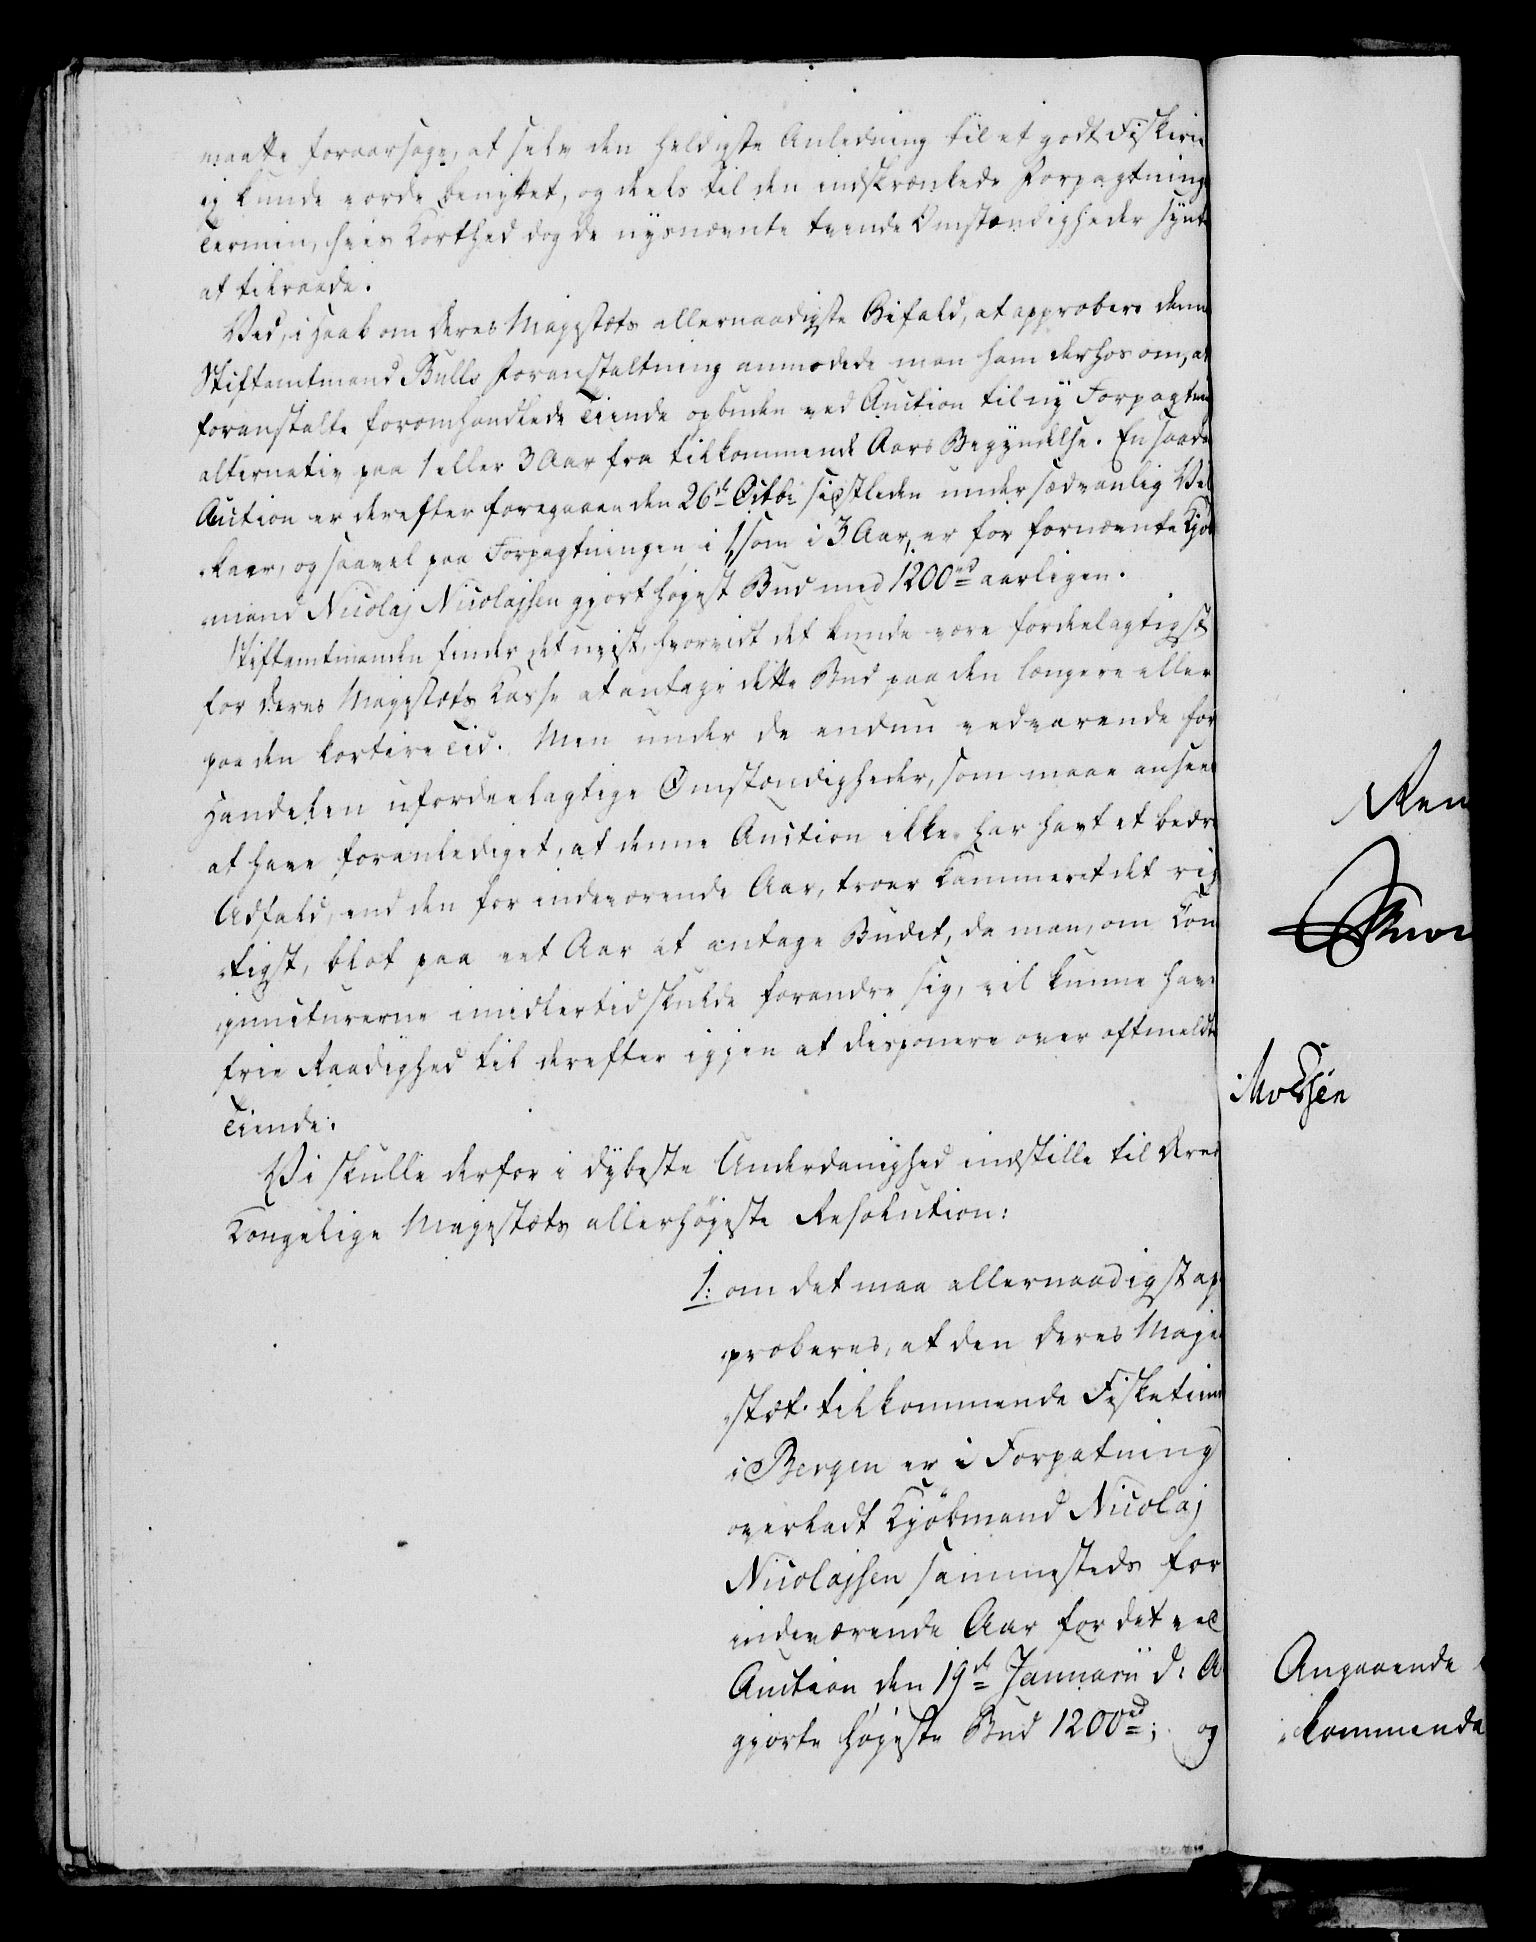 maatte foraarsage, at selv den heldigste Anledning til et godt Fiskerie
ej kunde vorde benyttet, og deels til den indskrænkede Forpagtnings
Termin, hvis Korthed dog de nysnævnte tvende Omstændigheder synt
at tilraade.
Ved, i Haab om Deres Majestæts allernaadigste Bifald, at approbere denne
Stiftamtmand Bulls Foranstaltning anmodede man ham derhos om, at
foranstalte foromhandlede Tiende opbuden ved Auction til ny Forpagtni
alternativ paa 1 eller 3 Aar fra tilkommende Aars Begyndelse. En saada
Auction er derefter foregaaen den 26de Octbr sidstleden under sædvanlig Vil
kaar, og saavel paa Forpagtningen i 1, som i 3 Aar, er for fornævnte Kjøb
mand Nicolaj Nicolajsen gjort højest Bud med 1200rd aarligen.
Stiftamtmanden finder det uvist, hvorvidt det kunde være fordeelagtigst
for Deres Majestæts Kasse at antage dette Bud paa den længere eller
paa den kortere Tid. Men under de endnu vedvarende for
Handelen ufordeelagtige Omstændigheder, som maae ansees
at have foranlediget, at denne Auction ikke har havt et bedre
Udfald, end den for indeværende Aar, troer Kammeret det rig
tigst, blot paa eet Aar at antage Budet, da man, om Con
juncturerne imidlertid skulde forandre sig, vil kunne have
frie Raadighed til derefter igjen at disponere over oftmeldte
Tiende.
Vi skulle derfor i dybeste Underdanighed indstille til Deres
Kongelige Majestæts allerhøjeste Resolution:
1: om det maa allernaadigst ap
proberes, at den Deres Maje
stæt tilkommende Fisketiend
i Bergen er i Forpatning
overladt Kjøbmand Nicolaj
Nicolajsen sammesteds for
indeværende Aar for det ved
Auction den 19de Januarii d: A
gjorte højeste Bud 1200rd; og
Ren
Knor
Angaaende
kommende